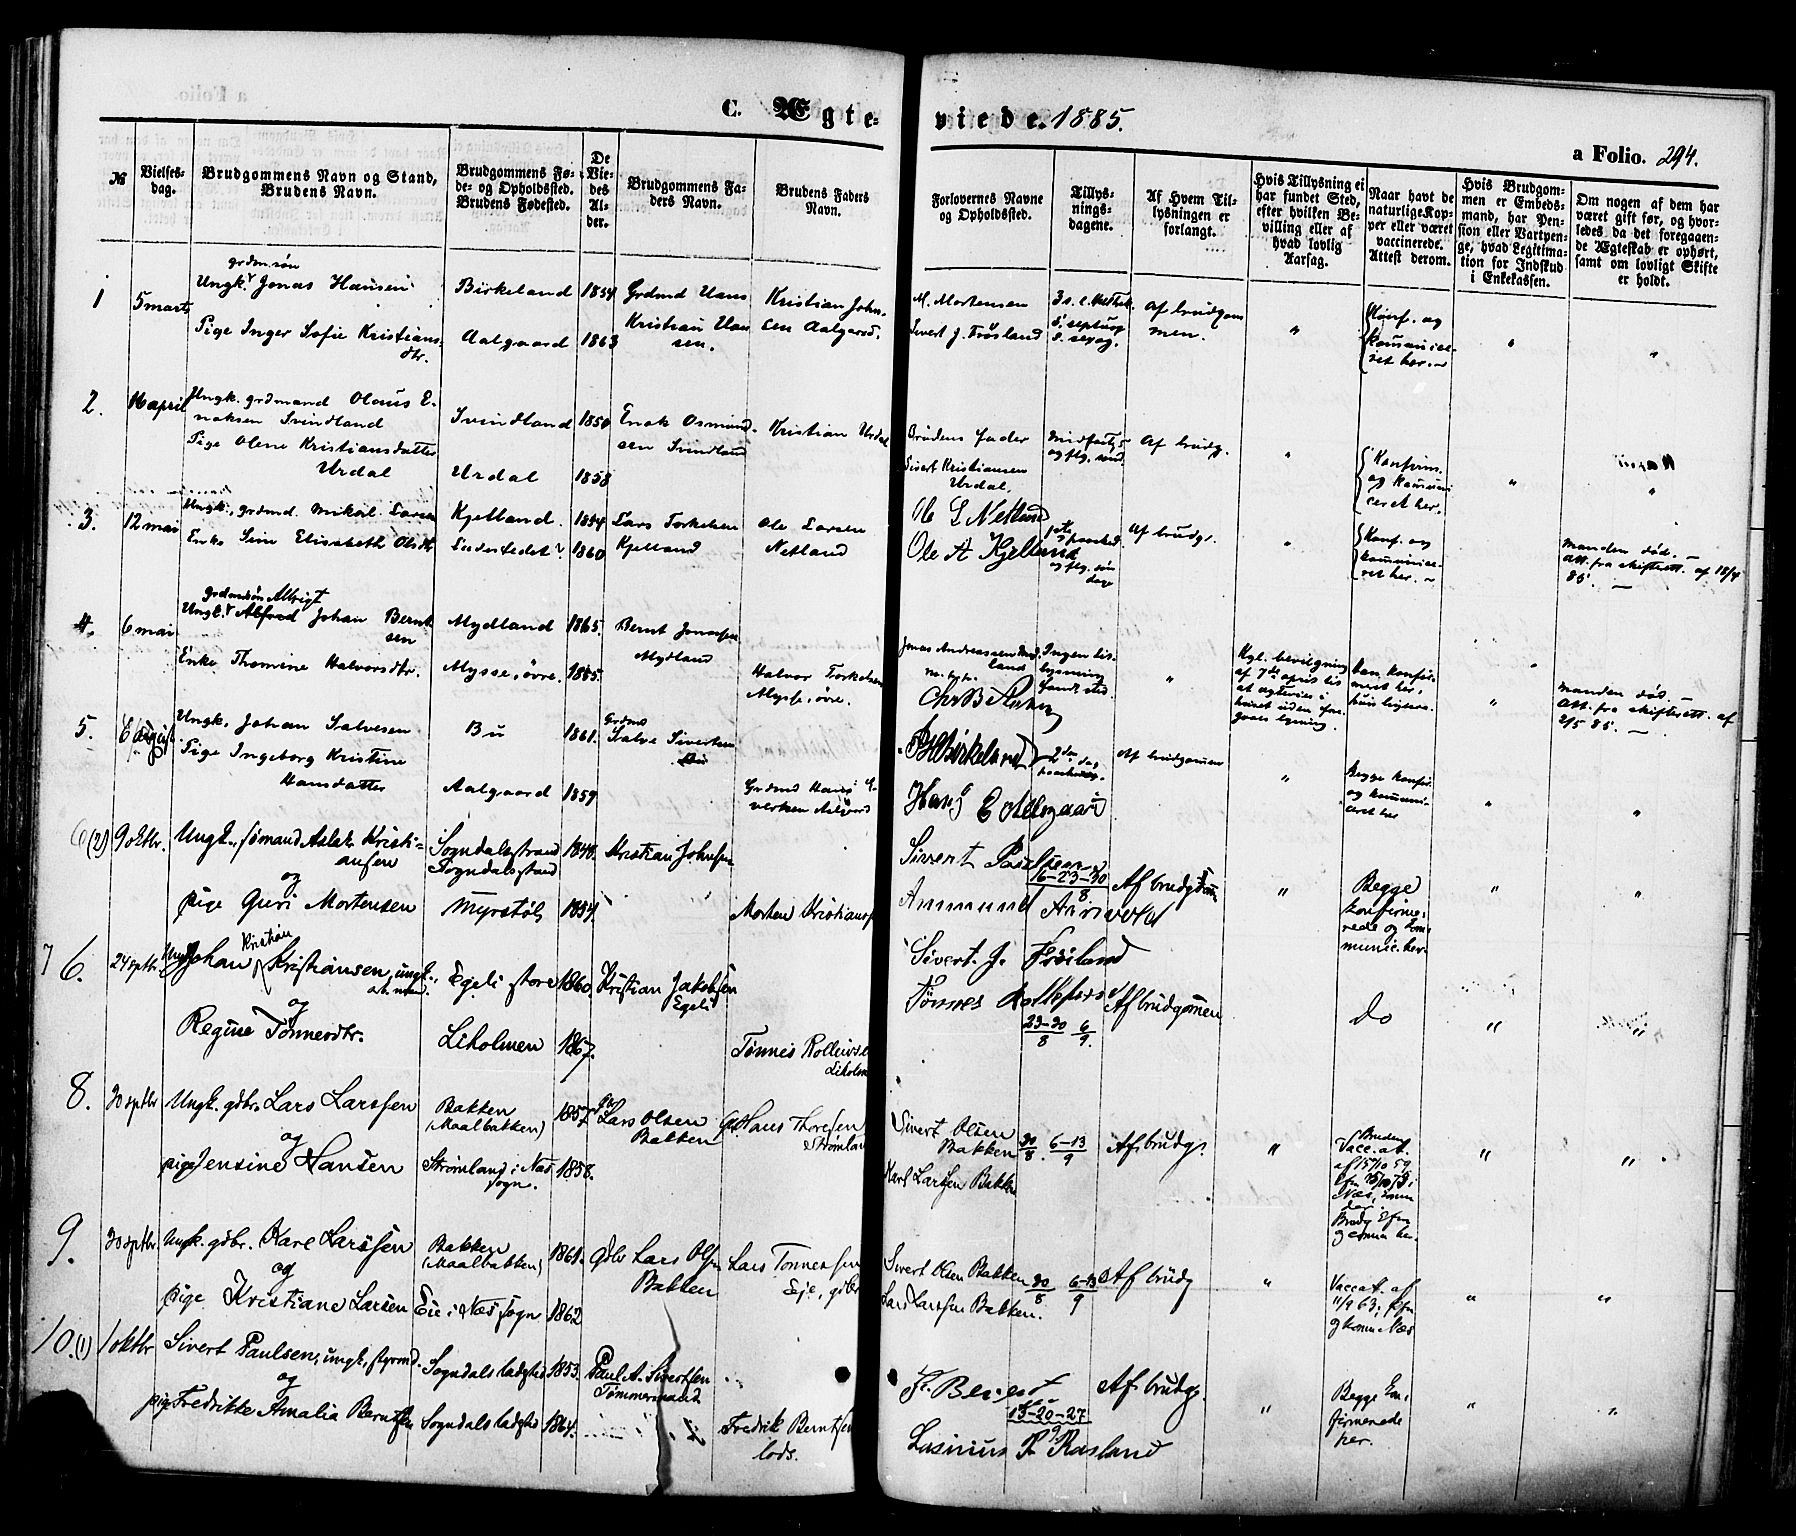 C. Ægteviede. 1885.
a Folio. 294.
№
Vielses-
dag.
Brudgommens Navn og Stand,
Brudens Navn.
Brudgommens Fø-
de- og Opholdssted.
Brudens Fødested.
De
Vie-
des
Al-
der.
Brudgommens Fa-
ders Navn.
Brudens Faders
Navn.
Forlovernes Navne
og Opholdssted.
Tillys-
nings-
dagene.
Af Hvem Til-
lysningen er
forlangt.
Hvis Tillysning ei
har fundet Sted,
efter hvilken Be-
villing eller af
hvad lovlig
Aarsag.
Naar havt de
naturlige Kop-
per eller været
vaccinerede.
Attest derom.
Hvis Brudgom-
men er Embeds-
mand, har Pen-
sion eller Vartpen-
ge, hvad Legitima-
tion for Indskud
i Enkekassen.
Om nogen af dem har
været gift før, og hvor-
ledes da det foregaaen-
de Ægteskab er ophørt,
samt om lovligt Skifte
er holdt.
1
5 marts
grdm. søn
Ungk. Jonas Hansen
Pige Inger Sofie Kristians-
dtr.
Birkeland
Aalgaard
1854
1863
Grdmd Hans
Kristian Han
sen.
Kristian John-
sen Aalgaard.
M. Mortensen
Sivert J. Frøsland
Af brudgom
men.
"
Konf. og
kommunice-
ret her. ~
"
"
2.
16 april
Ungk. grdmand Olaus E-
naksen Svindland
Pige Olene Kristiansdatter
Urdal
Svindland
Urdal
1850
1858
Enok Osmund-
sen Svindland
Kristian Urdal
Brudens fader
Sivert Kristiansen
Urdal.
Midfasts
og flg. sønd
Af brudg.
"
Konfirm.
og kommuni
ceret her.
"
"
3.
12 mai
Ungk., grdmd. Mikal Larsen
Enke Sine Elisabeth Olsdtr
Kjelland.
1854
1860
Lars Torkelsen
Kjelland
Ole Larsen
Netland
Ole L Netland
Ole A Kjelland
og flg. søn
dage
Af brudg.
"
Konf. og
kommunice-
ret her. ~
manden død. —
Att. fra skifterett. af 18/4
85. —
4.
6 mai
grdmdsøn Albrigt
Ungk. Alfred Johan Bernt
sen
Enke Thomine Halvorsdtr.
Mydland
Mysse, øvre.
1865.
1855.
Bernt Jonassen
Mydland
Halvor Torkelsen
Mysse, øvre.
Jonas Andreassen Myd-
land
Ingen lis-
lysning
fandt sted
"
Kgl. bevilgning
af 7de april til
at ægtevies i
huset uden fore-
gaaes lysning
Han konfir-
meret her,
hun ligesaa.
"
manden død. —
Att. fra skifterett. af
2/5 85. —
5.
6 august
Ungk. Johan Salvesen
Pige Ingeborg Kristine
Hansdatter
Bu
Aalgaard
1861.
1859
Grdmd
Salve Sivertsen
Bu
Grdmd Hans S-
vertsen Aalgaard
Birkeland
Hans E Aalgaard
2den dag
Af brudgommen
"
Begge konfir.
og kommuni-
ceret her
"
"
6 (2)
9 oktbr.
Ungk., sømand Aslak Kristi-
ansen
og
pige Guri Mortensen
Sogndalsstrand
Sogndalsstrand
Myrstøl
1848.
1854.
Kristian Johnsen
Morten Kristiansen
Sivert Paulsen
Ammund Aarrvold
16–23–30
8
Af brudgom
"
Begge
konfirme-
rede og kom-
munic. her.
"
"
7 6.
24 sptbr
Ungk Johan Kristian Kristiansen, ungk.
og
Regine Tønnesdtr.
Egeli store
Liholmen
1860.
1867.
Kristian Jakobsen
Egeli
Tønnes Rolleivsen
Liholmen
Sivert. J. Frøiland
Tønnes
23–30 6
8 9.
Af brudgommen
do
"
"
8.
30 sptbr
Ungk. gdbr. Lars Larssen
og
pige Jensine Hansen
Bakken
(Maalbakken)
Strømland i Næs
sogn.
1857
1858.
Gbr
Lars Olsen
Bakken
Hans Thorsen
Strømland
Sivert Olsen
Bakken
Karl Larsen Bakken
30 6–13
8. 9
Af brudg.
"
Bruden
Vacc. at.
af 15/10 59
Næs,
Brudg. kfm
g comm her.
"
"
9.
30 sptbr.
Ungk. gdbr. Karl Larssen
og
pige Kristiane Larsen
Bakken
(Maalbakken)
Eie i Næs sogn
1861.
1862
Gdbr Lars Olsen
Bakken
Lars Tønnessen
Eje, gdbr
Sivert Olsen Bakken
Lars Larssen Bakken.
30 6–13
8 9
Af brudg
"
Vacc at. af
11/9 63; kfm
g komm Næs
"
"
10. (1)
1 oktbr
Sivert Paulsen, ungk, styrmd.
og
pige Fredrikke Amalia Berntsen
Sogndals ladested
Sogndals ladested
1853.
1864.
Paul A. Sivertsen
Tømmermand
Fredrik Berntsen
lods.
F. Berntsen
Lasinius F. Rasland
13–20–27
9
Af brudg.
"
Begge kon-
firmerede
her.
"
"